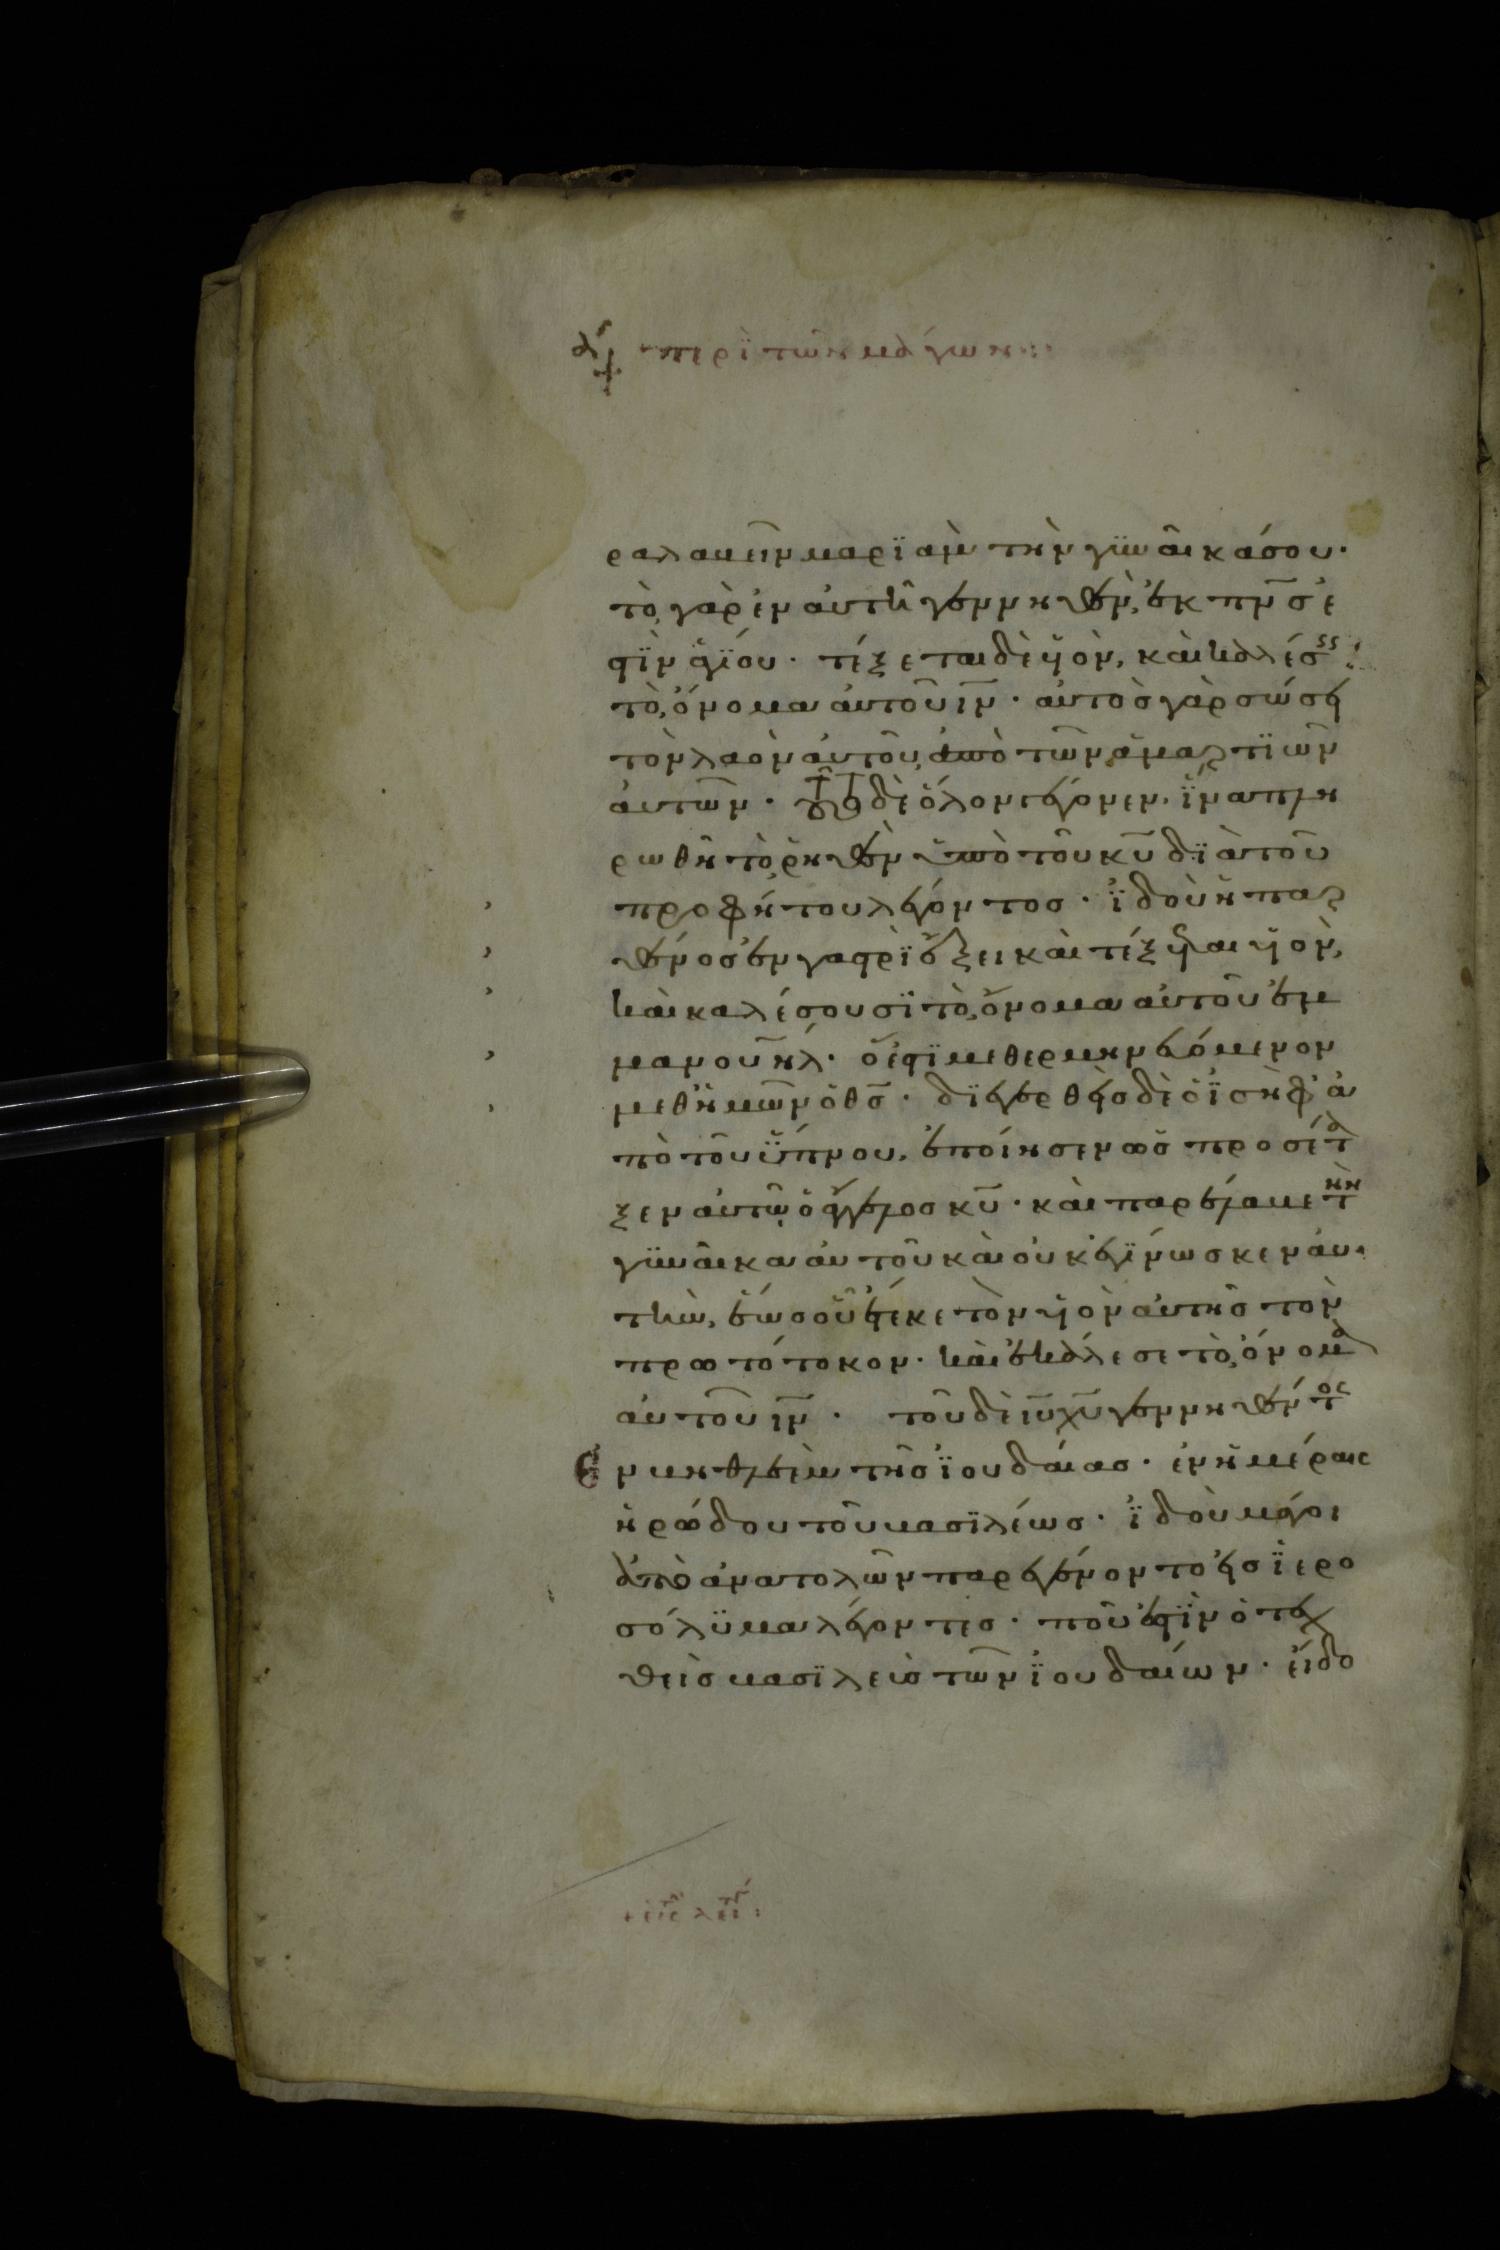 α περὶ τῶν μάγων
ραλαβεῖν μαρϊὰμ τὴν γϋναῖκά σου·
τὸ γὰρ ἐν αὐτῆ γεννηθὲν, ἐκ πν̅σ ἐ
στϊν ἁγΐου· τέξεται δὲ ϋἱὸν, καὶ καλέσ
τὸ ὄνομα αὐτοῦ ιν̅· αὐτὸσ γὰρ σώσει
τὸν λαὸν αὐτοῦ ἀπὸ τῶν ἁμαρτϊῶν
αὐτῶν· τοῦτο δὲ ὅλον γέγονεν, ἵνα πλη
ρωθῆ τὸ ῥηθὲν ὑπὸ τοῦ κυ̅ δϊὰ τοῦ
προφήτου λέγοντοσ· ϊδοὺ ἡ παρ
θένοσ ἐν γαστρϊ ἕξει καὶ τέξεται ϋἱὸν,
καὶ καλέσουσϊ τὸ ὄνομα αὐτοῦ ἐμ
μανουήλ· ὅ ἐστϊ μεθερμηνευόμενον
μεθ ἡμῶν ὁ θσ̅· δϊεγερθεὶσ δὲ ὁ ϊωσὴφ ἀ
πὸ τοῦ ὕπνου, ἐποίησεν ὡσ προσέτα
ξεν αὐτῶ ὁ ἄγγελοσ κυ̅· καὶ παρέλαβε τὴν
γϋναῖκα αὐτοῦ καὶ οὐκ ἐγϊνωσκεν αὐ
τὴν, ἕωσ οὗ ἔτεκε τὸν ϋἱὸν αὐτῆσ τὸν
πρωτότοκον· καὶ ἐκάλεσε τὸ ὄνομα
αὐτοῦ ιν̅· τοῦ δὲ ιυ̅ χυ̅ γεννηθέντος
Εν βηθλεὲμ τῆσ ϊουδαίασ· ἐν ἡμέραις
ἡρώδου τοῦ βασϊλέωσ· ϊδοὺ μάγοι
ἀπὸ ἀνατολῶν παρεγένοντο εἰσ ϊερο
σόλϋμα λέγοντεσ· ποῦ ἐστϊν ὁ τεχ
θεὶσ βασϊλεὺσ τῶν ϊουδαίων· εἴδο